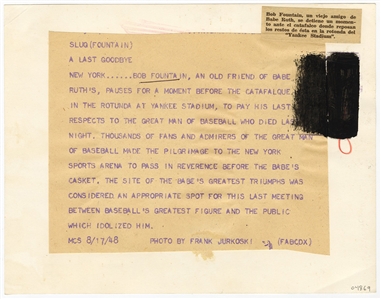 Bob Fountain, un viejo amigo de
Babe Ruth, se detiene un momen-
to ante el catafalco donde reposan
los restos de ésta en la rotonda del
"Yankee Stadium".
SLUG (FOUNTAIN)
A LAST GOODBYE
NEW YORK.....BOB FOUNTAIN, AN OLD FRIEND OF BABE
RUTH'S, PAUSES FOR A MOMENT BEFORE THE CATAFALQUE,
IN THE ROTUNDA AT YANKEE STADIUM, TO PAY HIS LAST
RESPECTS TO THE GREAT MAN OF BASEBALL WHO DIED LAST
NIGHT. THOUSANDS OF FANS AND ADMIRERS OF THE GREAT MAN
OF BASEBALL MADE THE PILGRIMAGE TO THE NEW YORK
SPORTS ARENA TO PASS IN REVERENCE BEFORE THE BABE'S
CASKET. THE SITE OF THE BABE'S GREATEST TRIUMPHS WAS
CONSIDERED AN APPROPRIATE SPOT FOR THIS LAST MEETING
BETWEEN BASEBALL'S GREATEST FIGURE AND THE PUBLIC
WHICH IDOLIZED HIM.
MCS 8/17/48 PHOTO BY FRANK JURKOSKI (FABCDX)